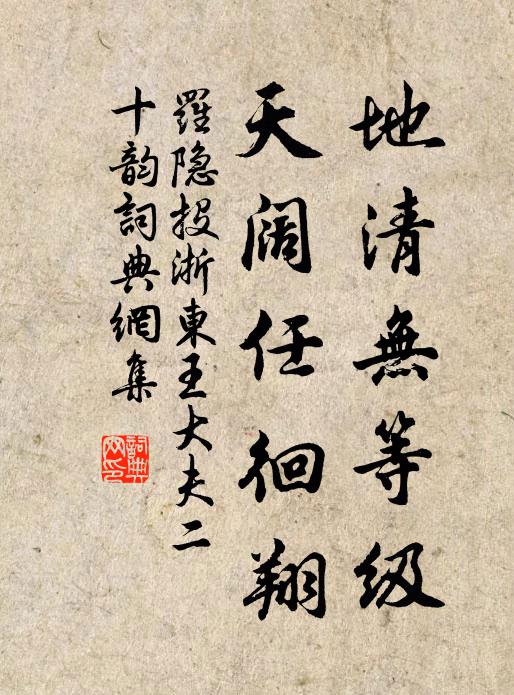 地清無等级
天阔任徊翔
羅隐投浙東王大夫二
十韵詞典網集
詞典